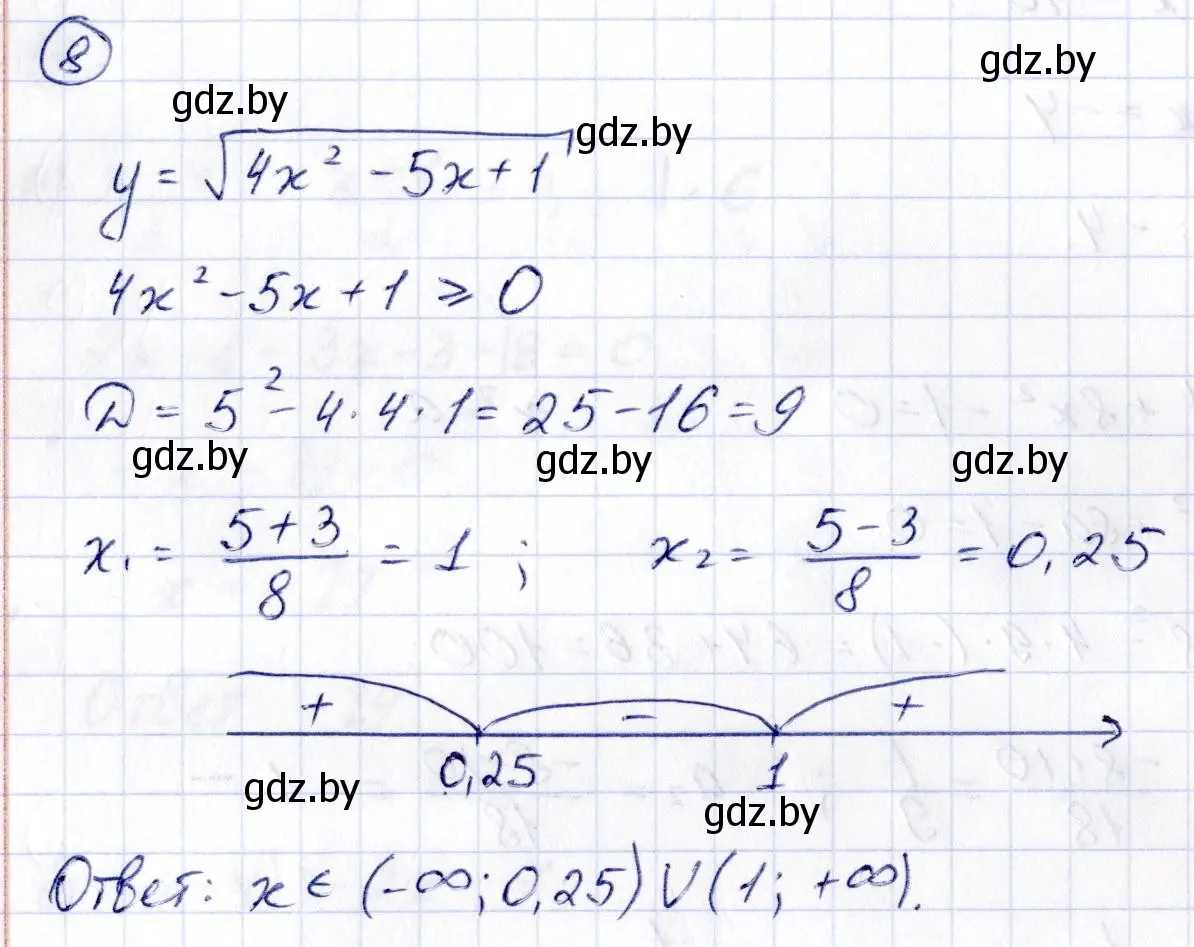 8
gdz.by
gdz.by
gdz.by
y = √(4x² - 5x + 1)
4x² - 5x + 1 ⩾ 0
D = 5² - 4 · 4 · 1 = 25 - 16 = 9
gdz.by
gdz.by
gdz.by
x₁ = (5 + 3)/8 = 1 ; x₂ = (5 - 3)/8 = 0,25
+ - +
0,25 1
gdz.by
gdz.by
Ответ: x ∈ (-∞; 0,25) ∪ (1; +∞).